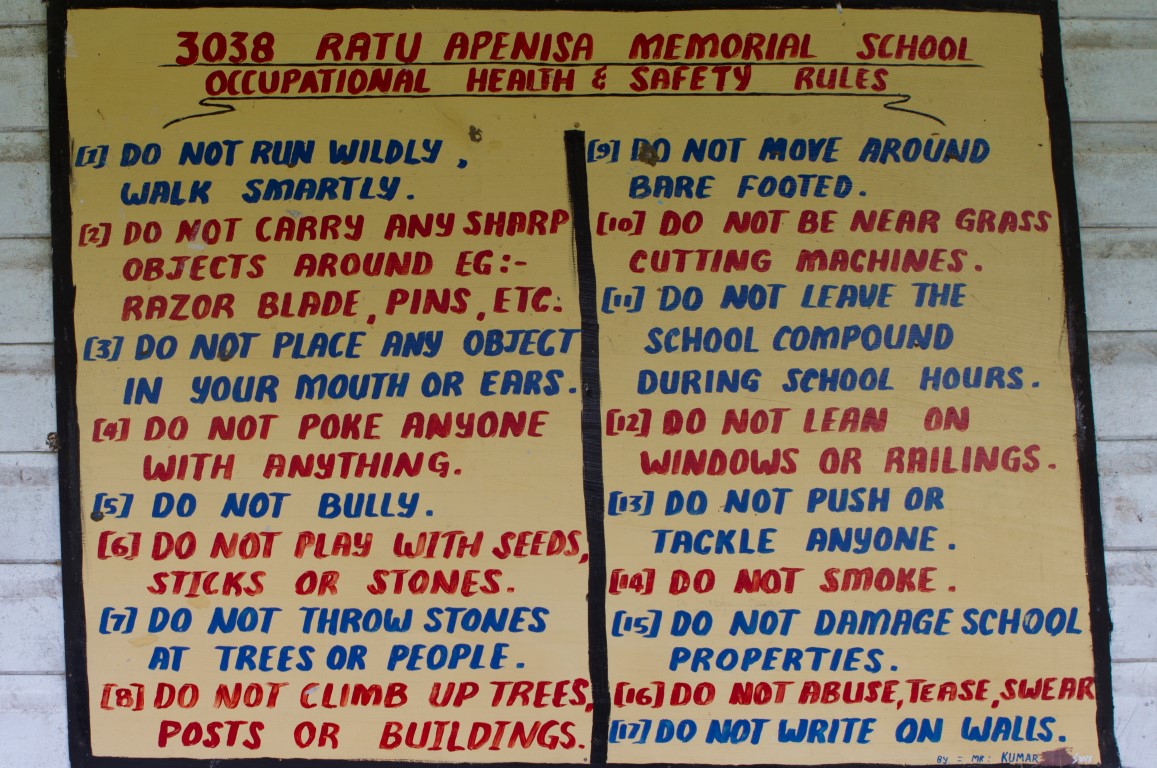 3038 RATU APENISA MEMORIAL SCHOOL
OCCUPATIONAL HEALTH & SAFETY RULES
[1] DO NOT RUN WILDLY ,
WALK SMARTLY.
[2] DO NOT CARRY ANY SHARP
OBJECTS AROUND EG:-
RAZOR BLADE, PINS, ETC.
[3] DO NOT PLACE ANY OBJECT
IN YOUR MOUTH OR EARS.
[4] DO NOT POKE ANYONE
WITH ANYTHING.
[5] DO NOT BULLY.
[6] DO NOT PLAY WITH SEEDS,
STICKS OR STONES.
[7] DO NOT THROW STONES
AT TREES OR PEOPLE.
[8] DO NOT CLIMB UP TREES,
POSTS OR BUILDINGS.
[9] DO NOT MOVE AROUND
BARE FOOTED.
[10] DO NOT BE NEAR GRASS
CUTTING MACHINES.
[11] DO NOT LEAVE THE
SCHOOL COMPOUND
DURING SCHOOL HOURS.
[12] DO NOT LEAN ON
WINDOWS OR RAILINGS.
[13] DO NOT PUSH OR
TACKLE ANYONE.
[14] DO NOT SMOKE.
[15] DO NOT DAMAGE SCHOOL
PROPERTIES.
[16] DO NOT ABUSE, TEASE, SWEAR
[17] DO NOT WRITE ON WALLS.
BY = MR: KUMAR